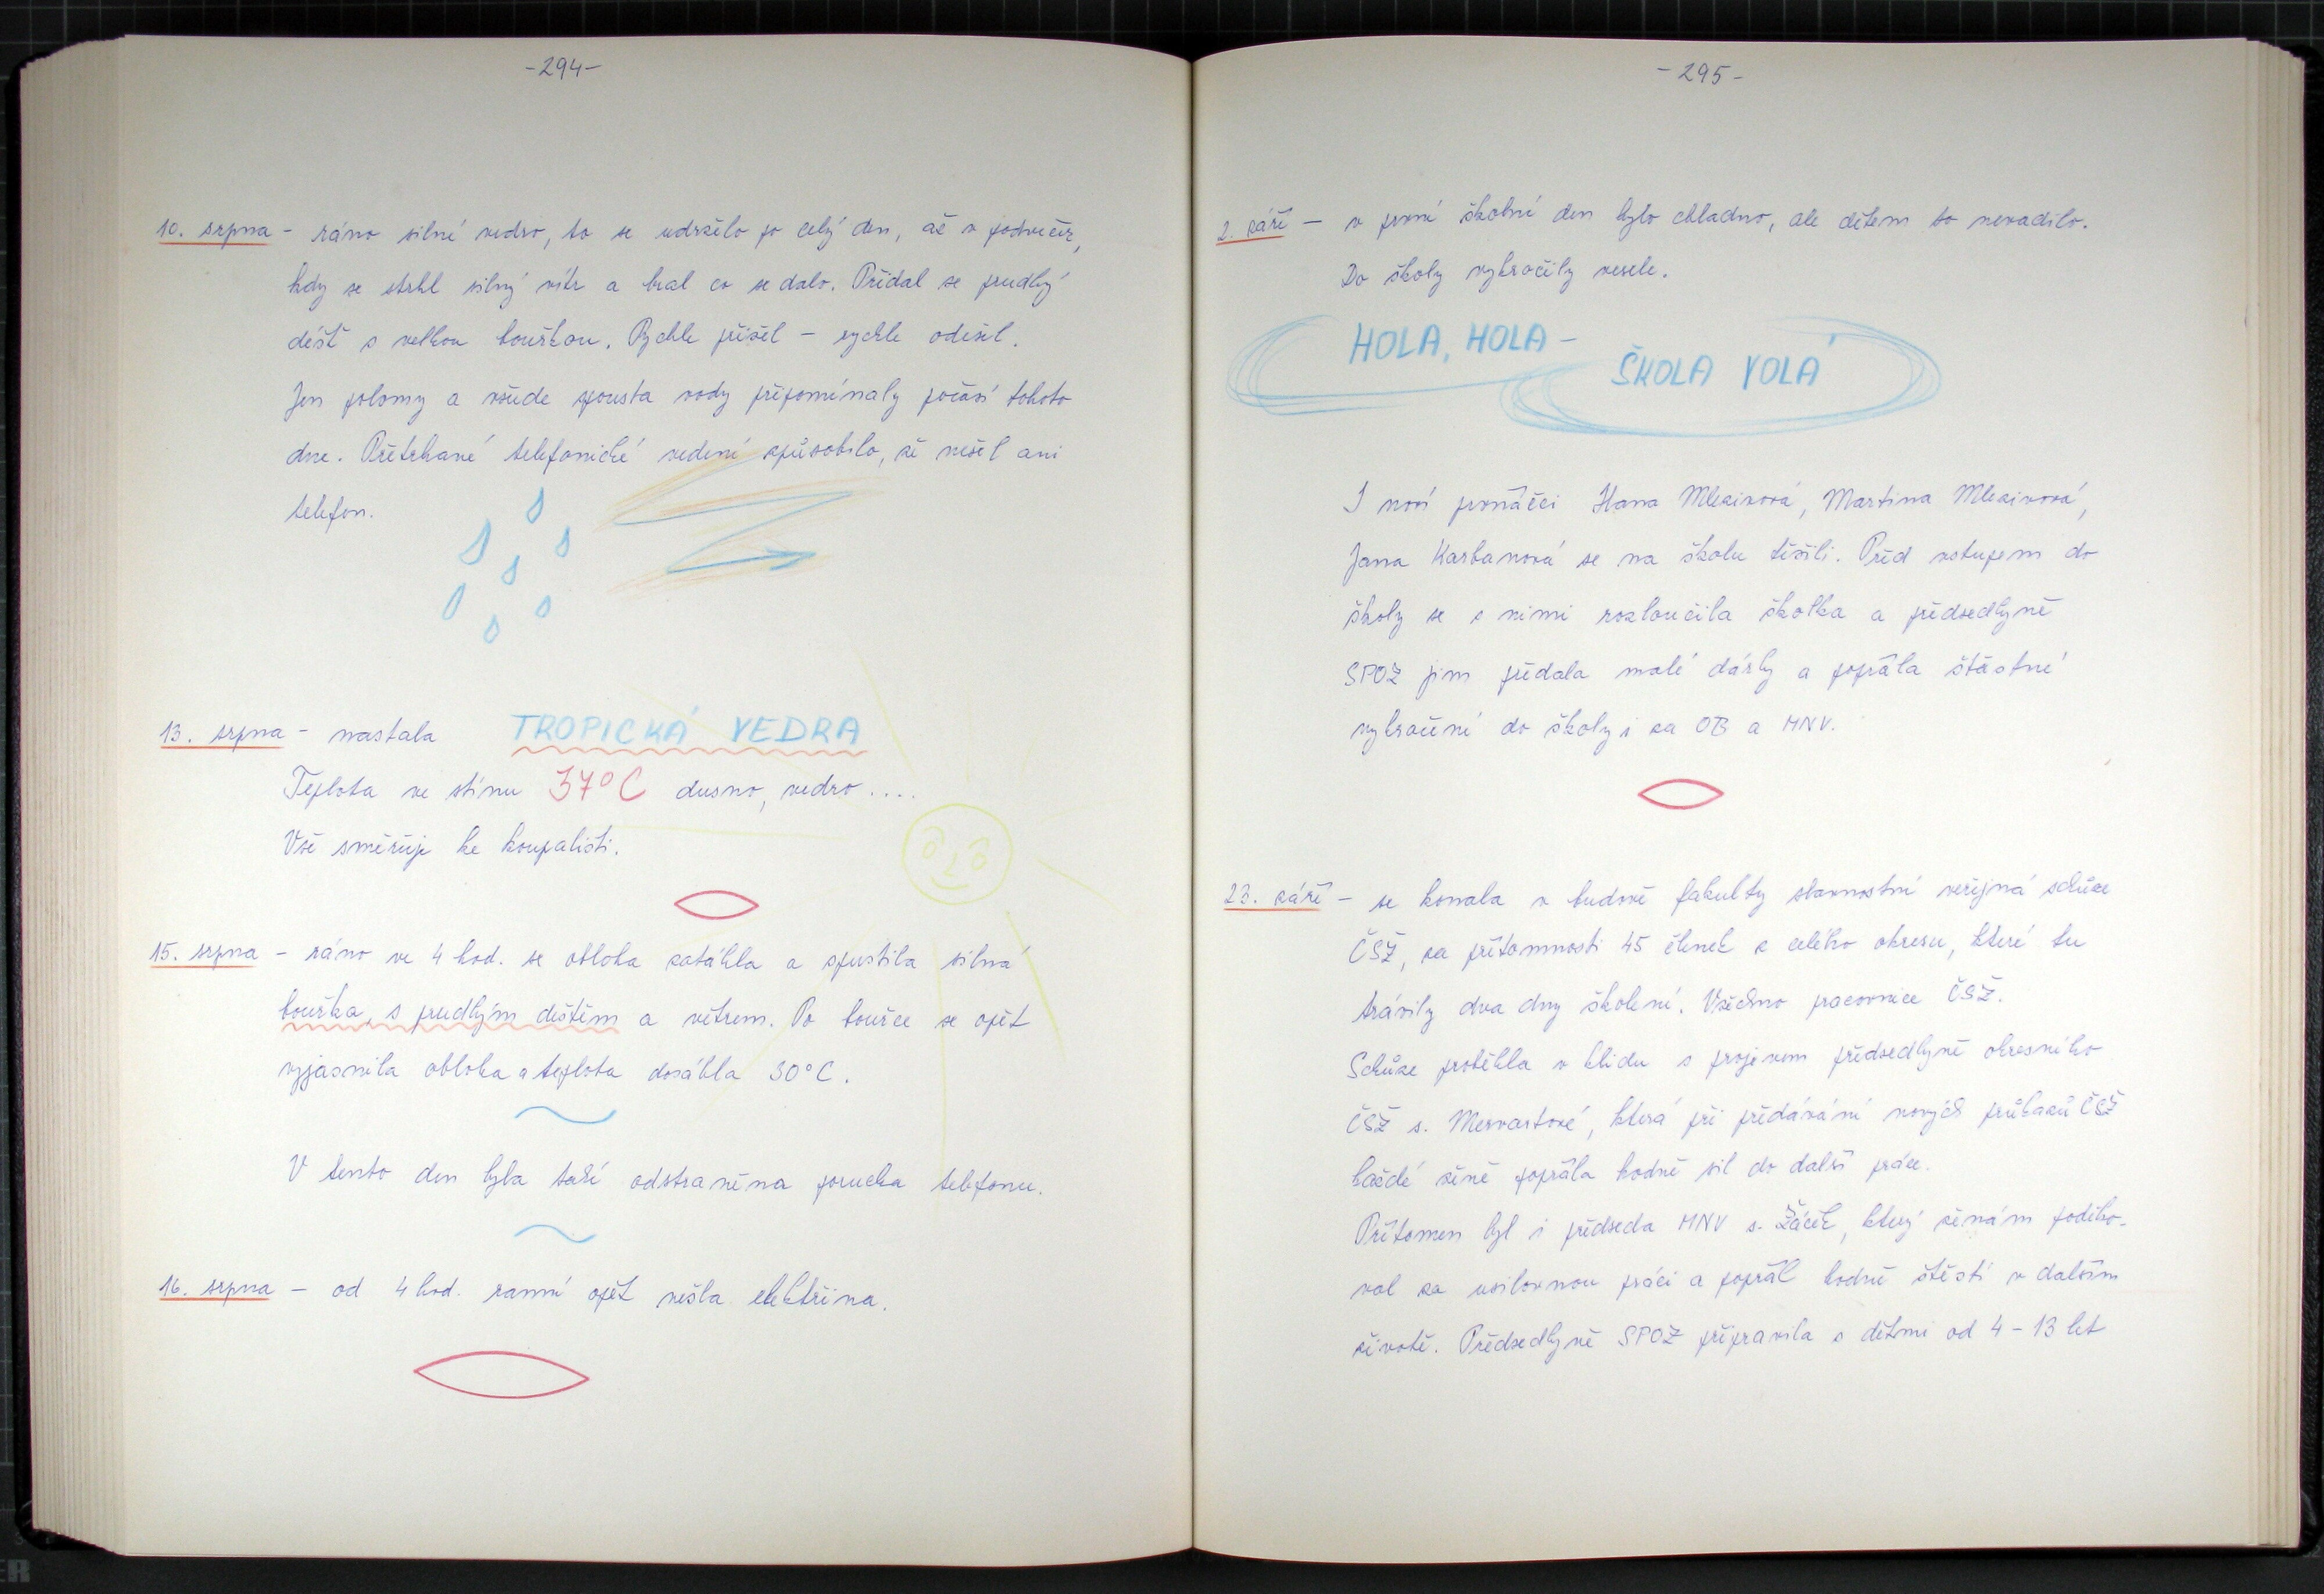 -294-
10. srpna - ráno silné vedro, to se udrželo po celý den, až v podvečer,
kdy se strhl silný vítr a bral co se dalo. Přidal se prudký
déšť s velkou bouřkou. Rychle přišel - rychle odešel.
Jen polomy a všude spousta vody připomínaly počasí tohoto
dne. Přetrhané telefonické vedení způsobilo, že nešel ani
telefon.
13. srpna - nastala TROPICKÁ VEDRA
Teplota ve stínu 37°C dusno, vedro....
Vše směřuje ke koupališti.
15. srpna - ráno ve 4 hod. se obloha zatáhla a spustila silná
bouřka, s prudkým deštěm a větrem. Po bouřce se opět
vyjasnila obloha a teplota dosáhla 30°C.
V tento den byla také odstraněna porucha telefonu.
16. srpna - od 4 hod. ranní opět nešla elektřina.
-295-
2. září - v první školní den bylo chladno, ale dětem to nevadilo.
Do školy vykročily vesele.
HOLA, HOLA -
ŠKOLA VOLÁ
I noví prvňáčci Hana Mlezivová, Martina Mlezivová,
Jana Karbanová se na školu těšili. Před vstupem do
školy se s nimi rozloučila školka a předsedkyně
SPOZ jim předala malé dárky a popřála šťastné
vykročení do školy i za OB a MNV.
23. září - se konala v budově fakulty slavnostní veřejná schůze
ČSŽ, za přítomnosti 45 členek z celého okresu, které tu
trávily dva dny školení. Všechno pracovnice ČSŽ.
Schůze proběhla v klidu s projevem předsedkyně okresního
ČSŽ s. Mervartové, která při předávání nových průkazů ČSŽ
každé ženě popřála hodně sil do další práce.
Přítomen byl i předseda MNV s. Žáček, který ženám poděko-
val za usilovnou práci a popřál hodně štěstí v dalším
životě. Předsedkyně SPOZ připravila s dětmi od 4 - 13 let